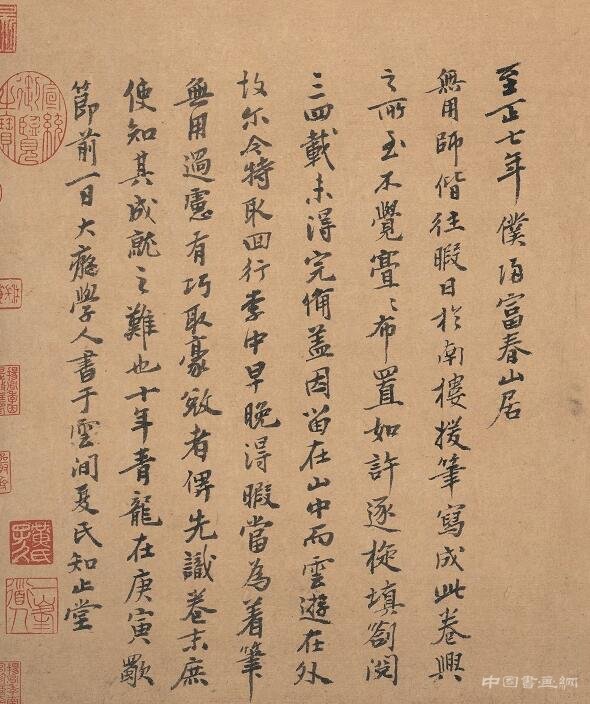 至正七年僕歸富春山居
無用師偕往暇日於南樓援筆寫成此卷興
之所至不覺亹〻布置如許逐旋填劄閱
三四載未得完備盖因留在山中而雲遊在外
故尔今特取回行李中早晚得暇當為着筆
無用過慮有巧取豪敓者俾先識卷末庶
使知其成就之難也十年青龍在庚寅歜
節前一日大癡學人書于雲間夏氏知止堂
宣統御覽之寶
黃氏子久
一峯道人
中国書畫網